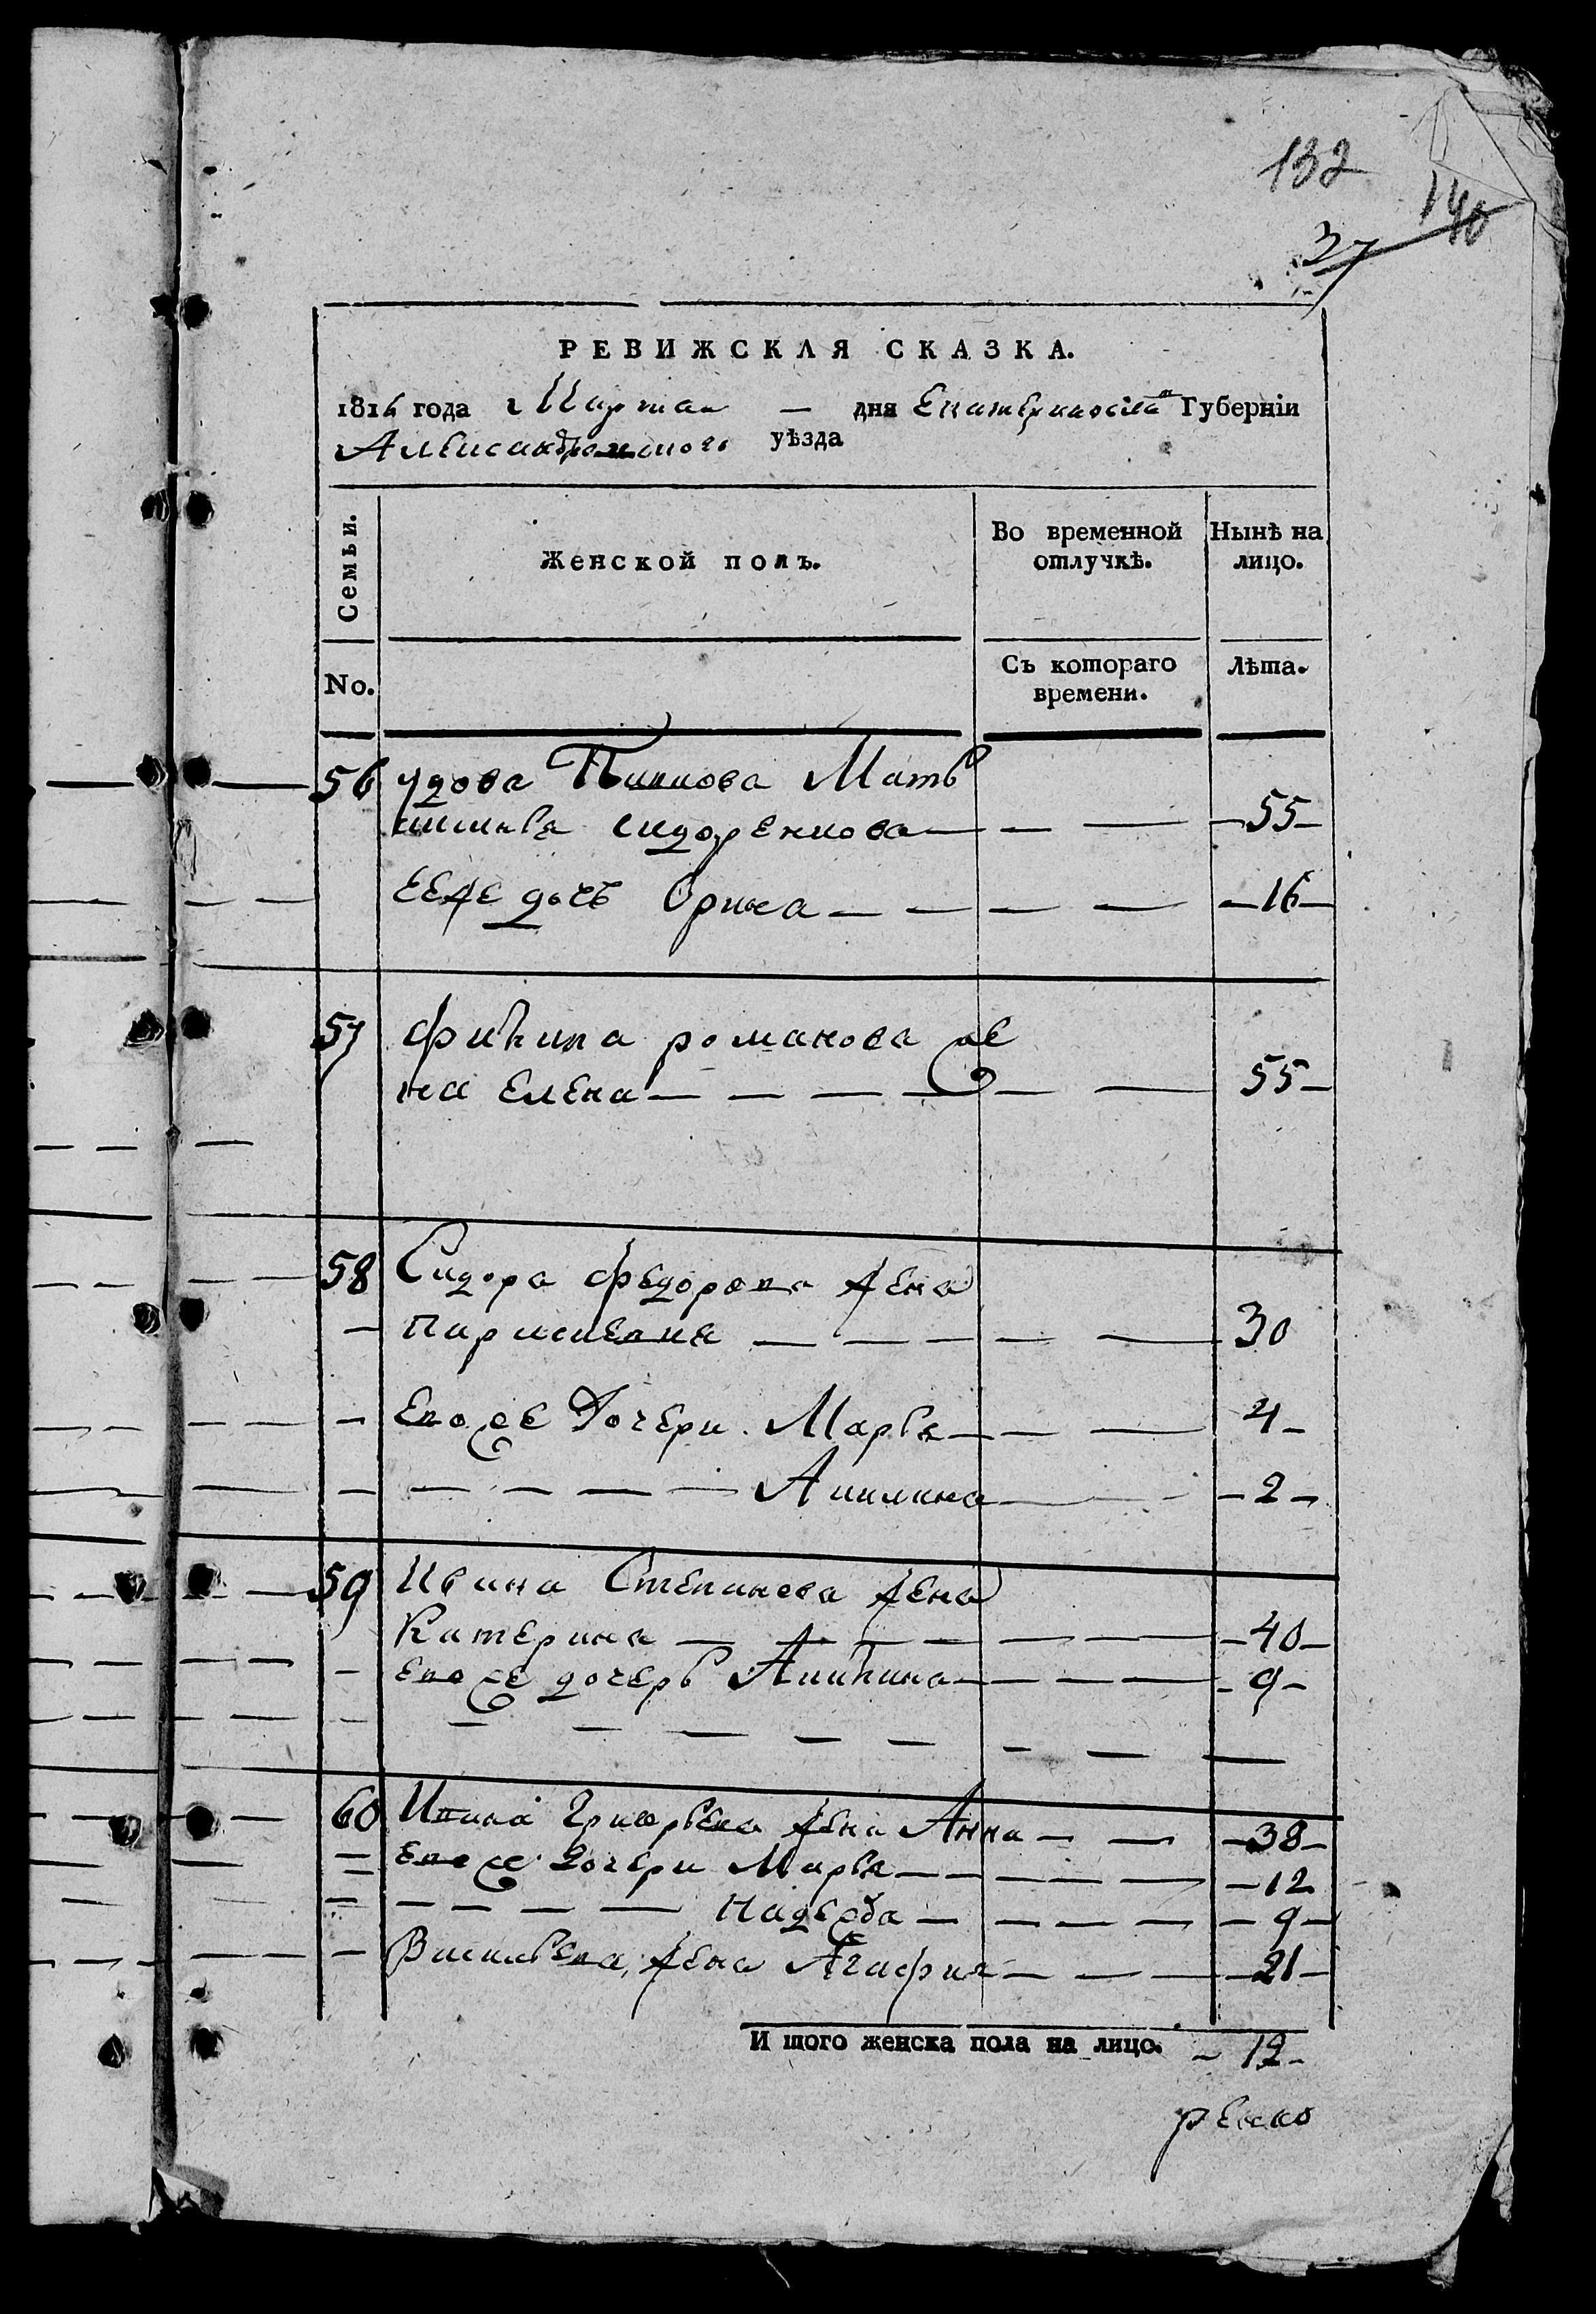 132
140
37
РЕВИЖСКАЯ СКАЗКА.
1816 года Марта — дня Екатериносла Губернiи
Александровского уѣзда
Семьи.
Женской полъ.
Во временной отлучкѣ.
Нынѣ на лицо.
No.
Съ котораго времени.
Лѣта.
56 удова Мать
сидоренкова — — — 55 —
ееже дочь Орина — — — — 16 —
57 Филипа романова же
на Елена — — — — — 55 —
58 Сидора Федорова жена
— — — — — 30
Его же Дочери Марья — — — 4 —
— — — — Акилина — — 2 —
59 Ивана Степанова жена
Катерина — — — — — — 40 —
его же дочерь Акилина — — — — 9 —
60 Григорьева жена Анна — — — 38 —
его же дочери Марья — — — — — 12
— — — — Надежда — — — — 9 —
Васильева жена Агафия — — — 21 —
И того женска пола на лицо. — 12 —
ренко